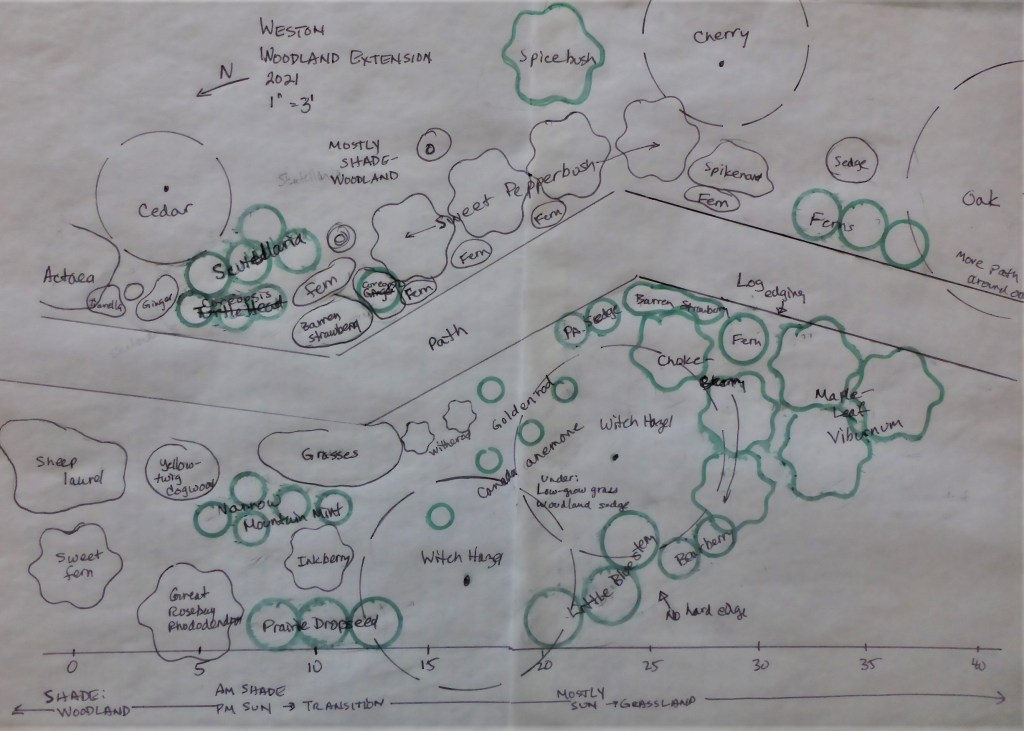 WESTON
WOODLAND EXTENSION
2021
1" = 3'
N
Spicebush
Cherry
MOSTLY
SHADE-
WOODLAND
Sweet Pepperbush
Spikenard
Fern
Sedge
Ferns
Oak
More Path
Cedar
Scutellaria
Actaea
Ginger
Coreopsis
Fern
Barren
Strawberry
Coreopsis
Ginger
Fern
Fern
Fern
Path
Log
edging
PA. Sedge
Barren Strawberry
Fern
Choke-
Berry
Maple-
Leaf
Viburnum
Sheep
laurel
Yellow-
twig
dogwood
Grasses
witherod
Goldenrod
Canada anemone
Witch Hazel
Under:
Low-grow grass
Woodland sedge
Narrow
Mountain Mint
Sweet
fern
Great
Rosebay
Rhododendron
Inkberry
Witch Hazel
Prairie Dropseed
Little Bluestem
Bearberry
No hard edge
0 5 10 15 20 25 30 35 40
SHADE:
WOODLAND
AM SHADE
PM SUN → TRANSITION
MOSTLY
SUN → GRASSLAND